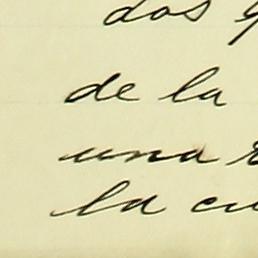 dos
de la
una
la cu